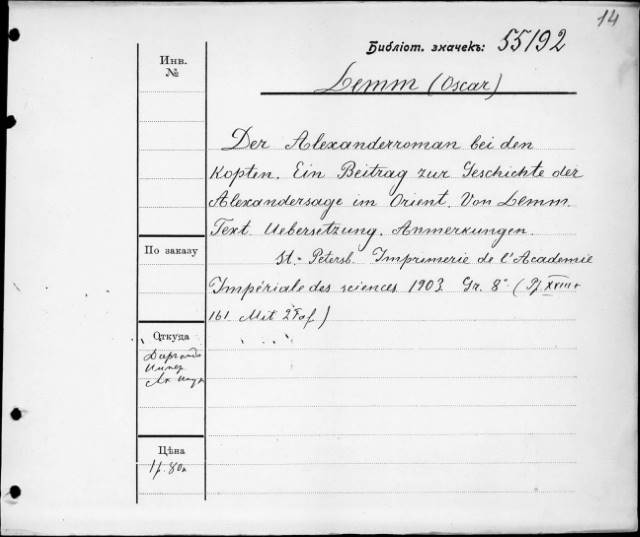 14
Библіот. значекъ: 55192
Инв.
№
Lemm (Oscar)
Der Alexanderroman bei den
Kopten. Ein Beitrag zur Geschichte der
Alexandersage im Orient. Von Lemm.
Text. Uebersetzung. Anmerkungen.
По заказу
St.-Petersb. Imprimerie de l'Academie
Impériale des sciences 1903. Gr. 8° (Pp. XVIII+
161 Mit 2 Taf)
Откуда
Импер.
Ак. Наук
Цѣна
1 р. 80 к